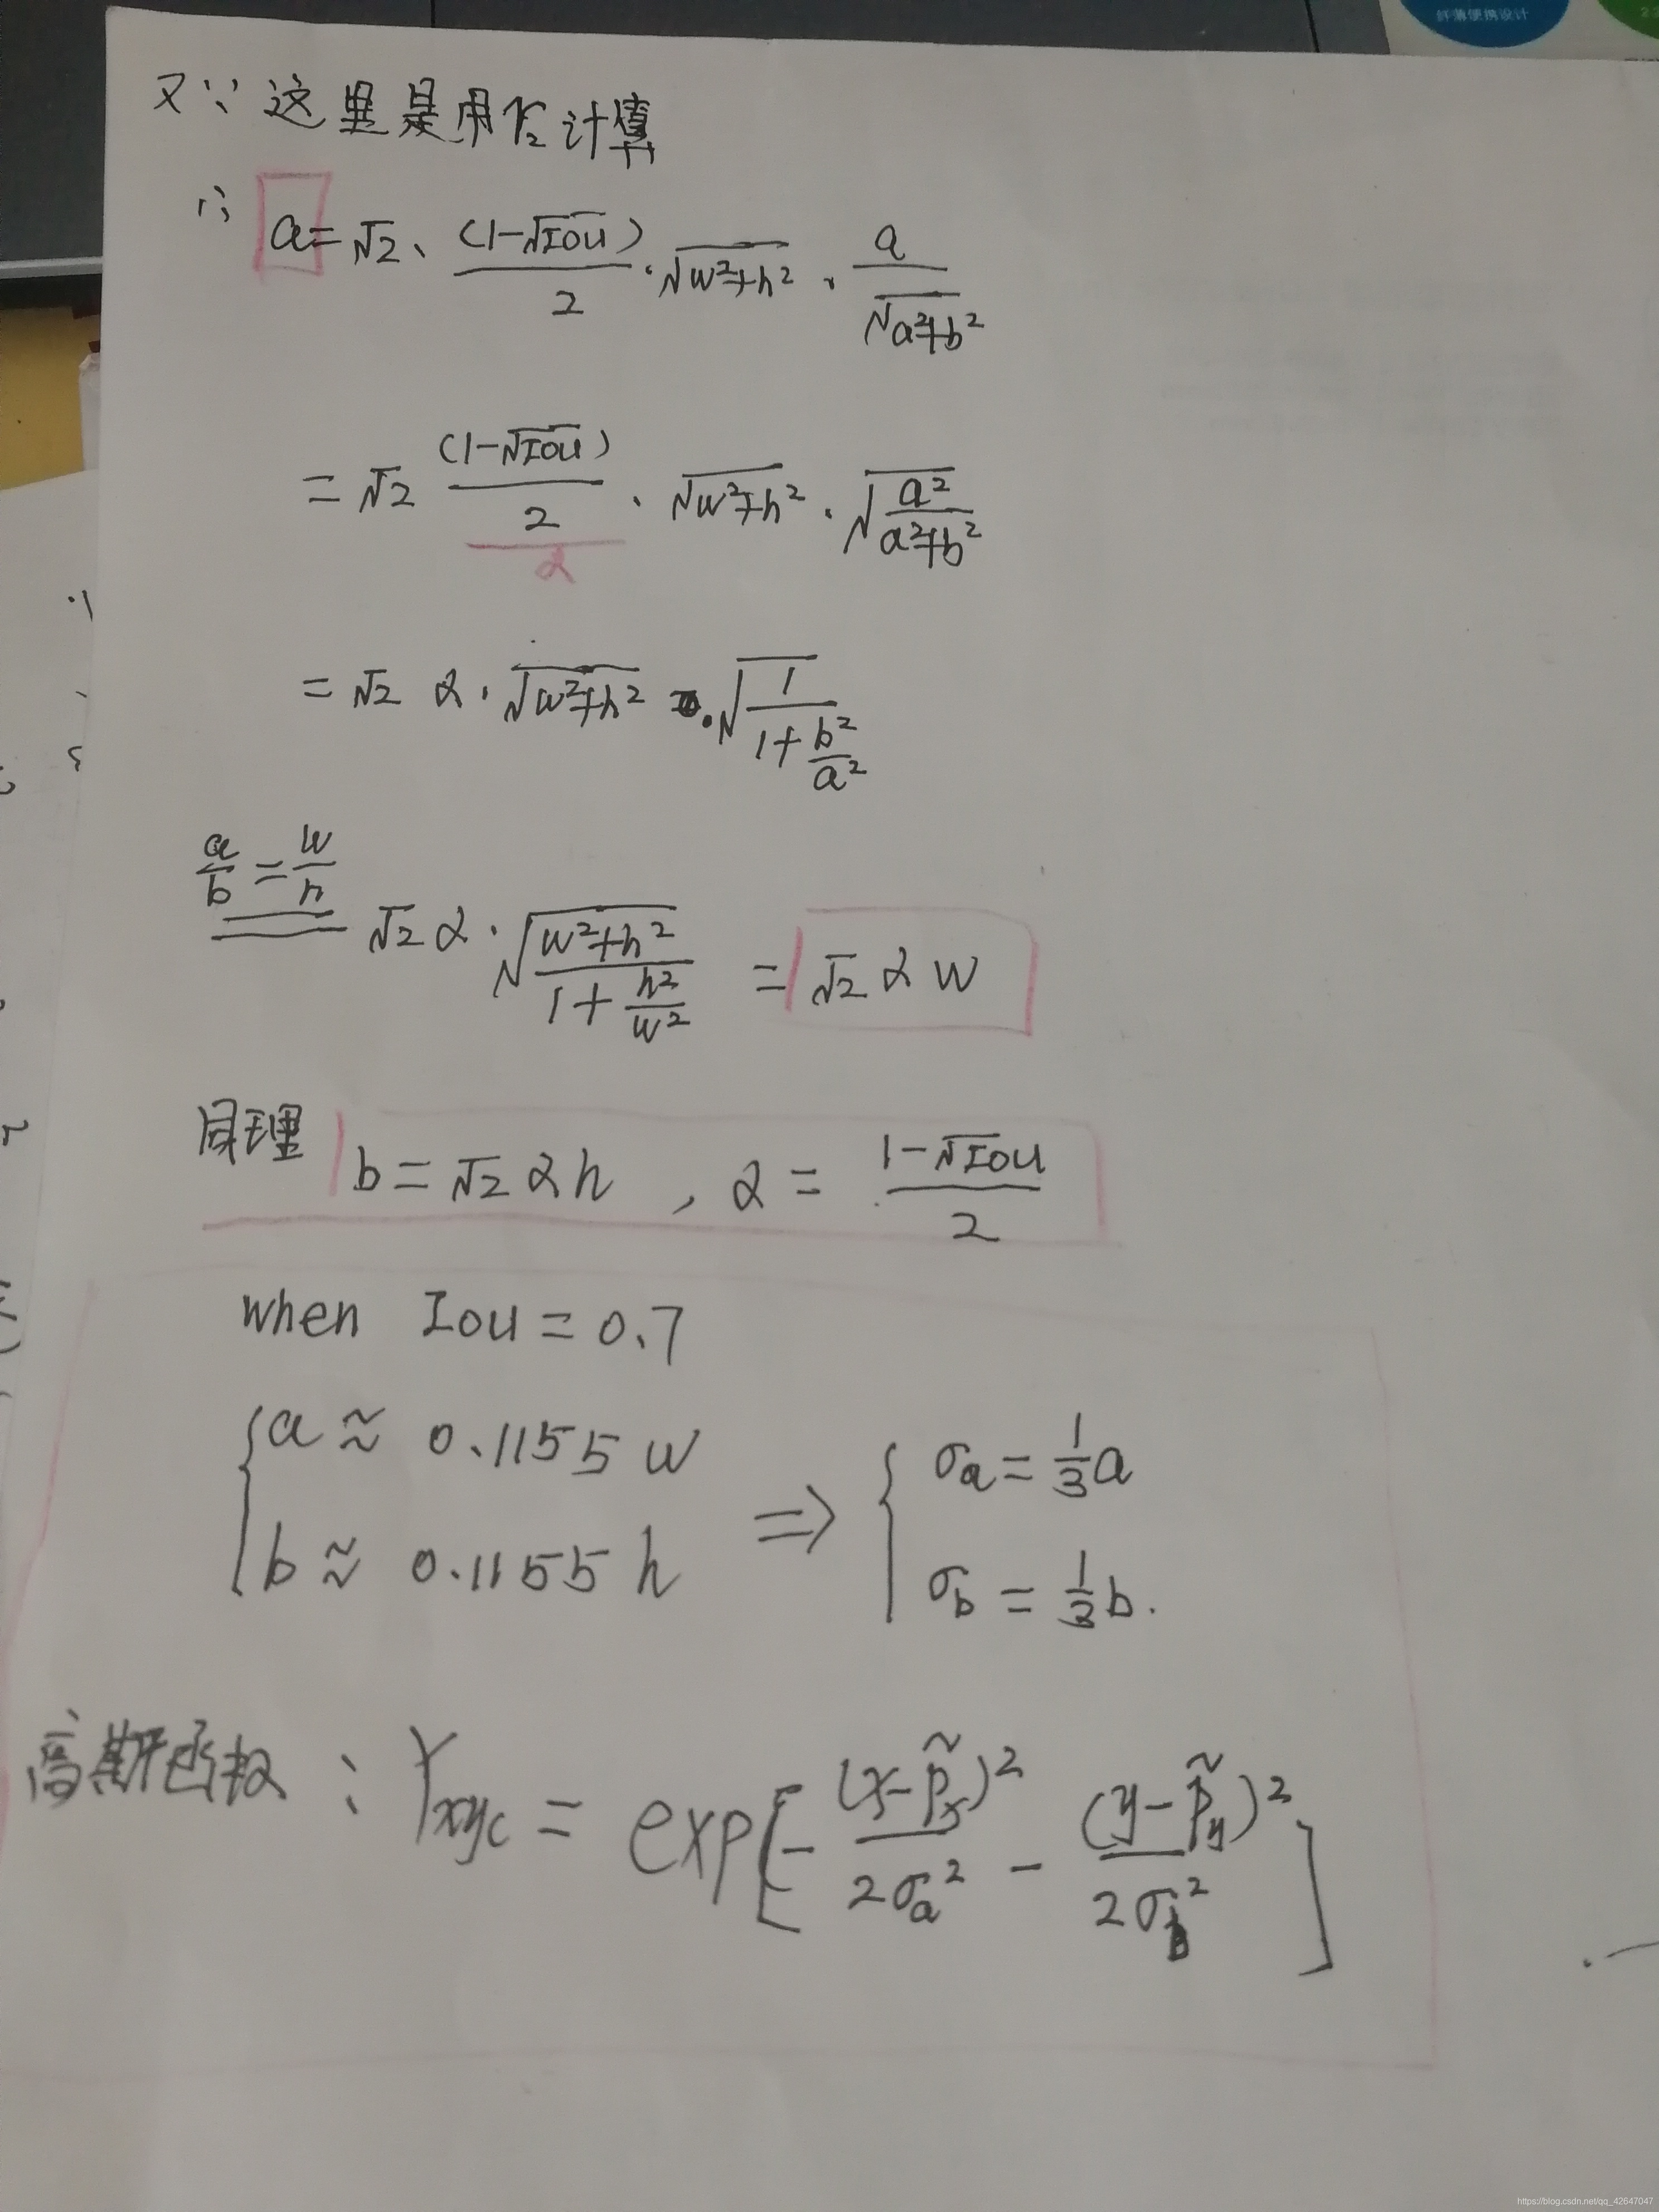 纤薄便携设计
又∵这里是用r₂计算
∴ a = √2 · (1-√Iou)/2 · √(w²+h²) · a/√(a²+b²)
= √2 (1-√Iou)/2 · √(w²+h²) · √(a²/(a²+b²))
α
= √2 α · √(w²+h²) · √(1/(1+b²/a²))
a/b = w/h
√2 α · √((w²+h²)/(1+h²/w²)) = √2 α w
同理 b = √2 α h , α = (1-√Iou)/2
when Iou = 0.7
{ a ≈ 0.1155 w
b ≈ 0.1155 h
⇒ { σa = 1/3 a
σb = 1/3 b.
高斯函数: Yxyc = exp[-(x-p̃x)²/2σa² - (y-p̃y)²/2σb²]
https://blog.csdn.net/qq_42647047